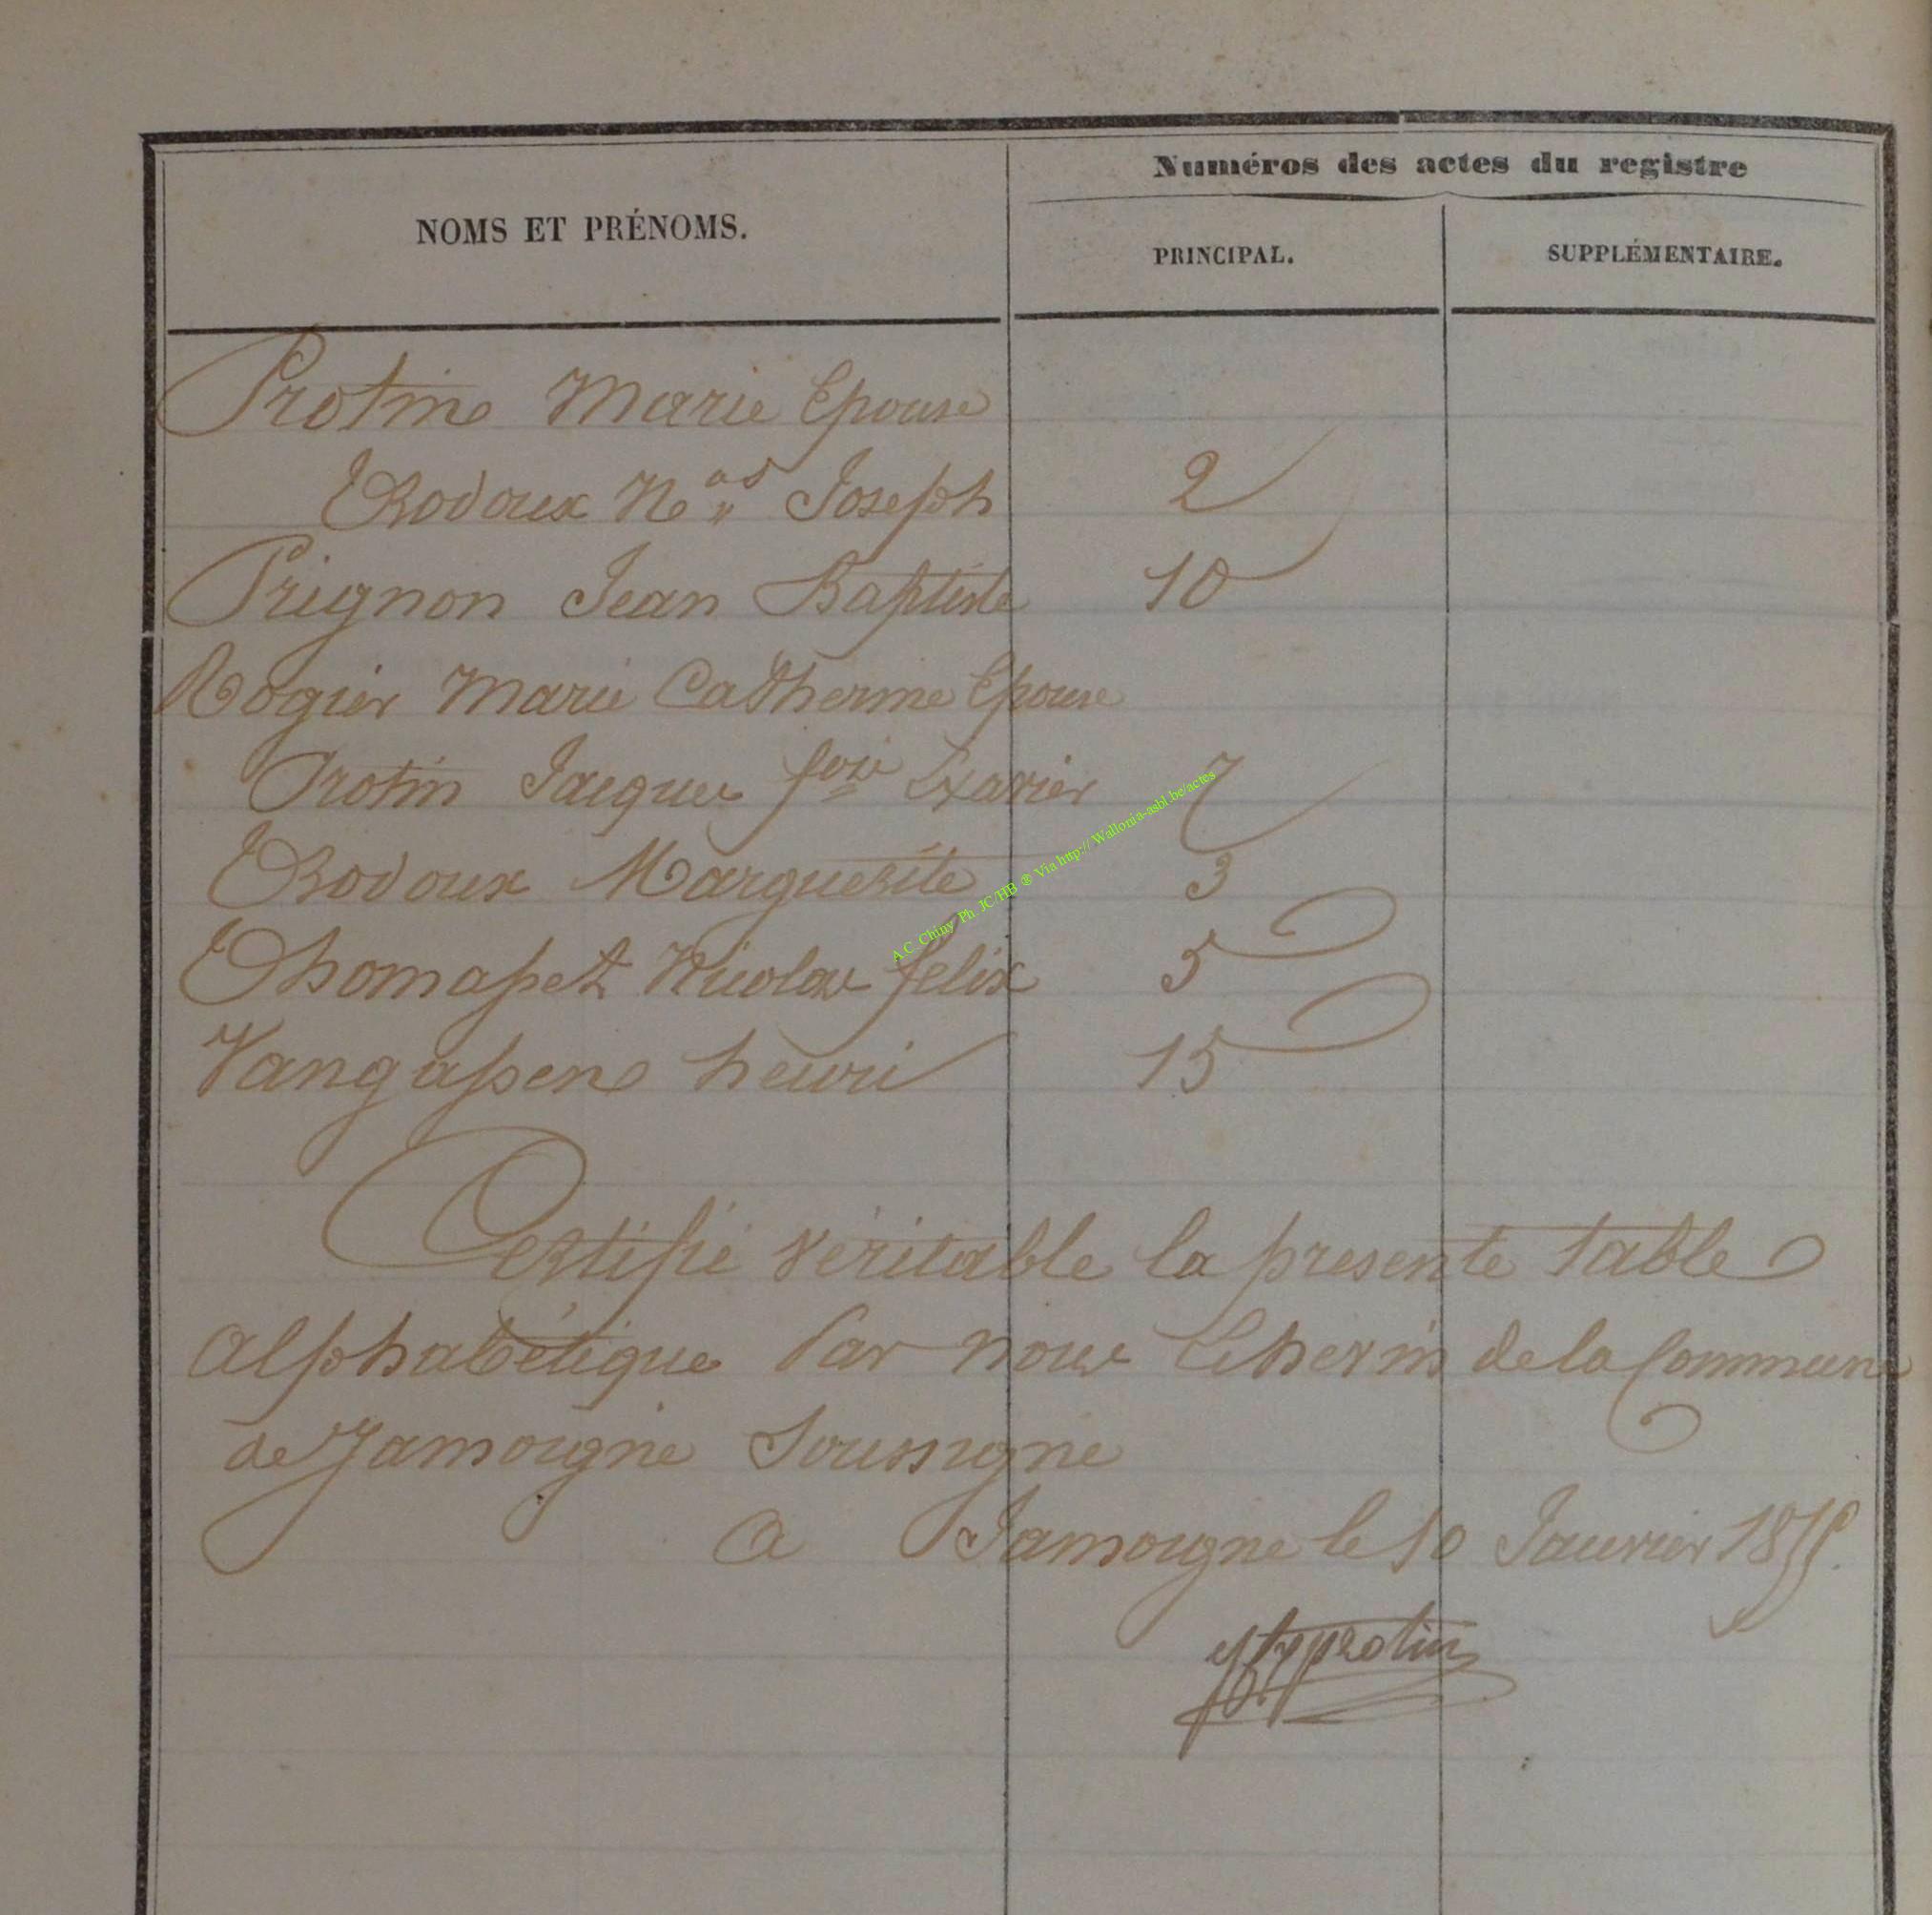 Numéros des actes du registre
NOMS ET PRÉNOMS.
PRINCIPAL.
SUPPLÉMENTAIRE.
Protin Marie Epouse
Rodoux Nas Joseph 2
Prignon Jean Baptiste 10
Rogier Marie Catherine Epouse
Protin Jacques fois Xavier 7
Rodoux Marguerite 3
Thomasset Nicolas felix 5
Vangassen henri 15
Certifié véritable la presente table
alphabétique Par nous Echevin de la Commune
de Jamoigne Soussigne
A Jamoigne le 10 Janvier
protin
A.C. Chiny Ph. JC/HB ® Via http://Wallonia-asbl.be/actes